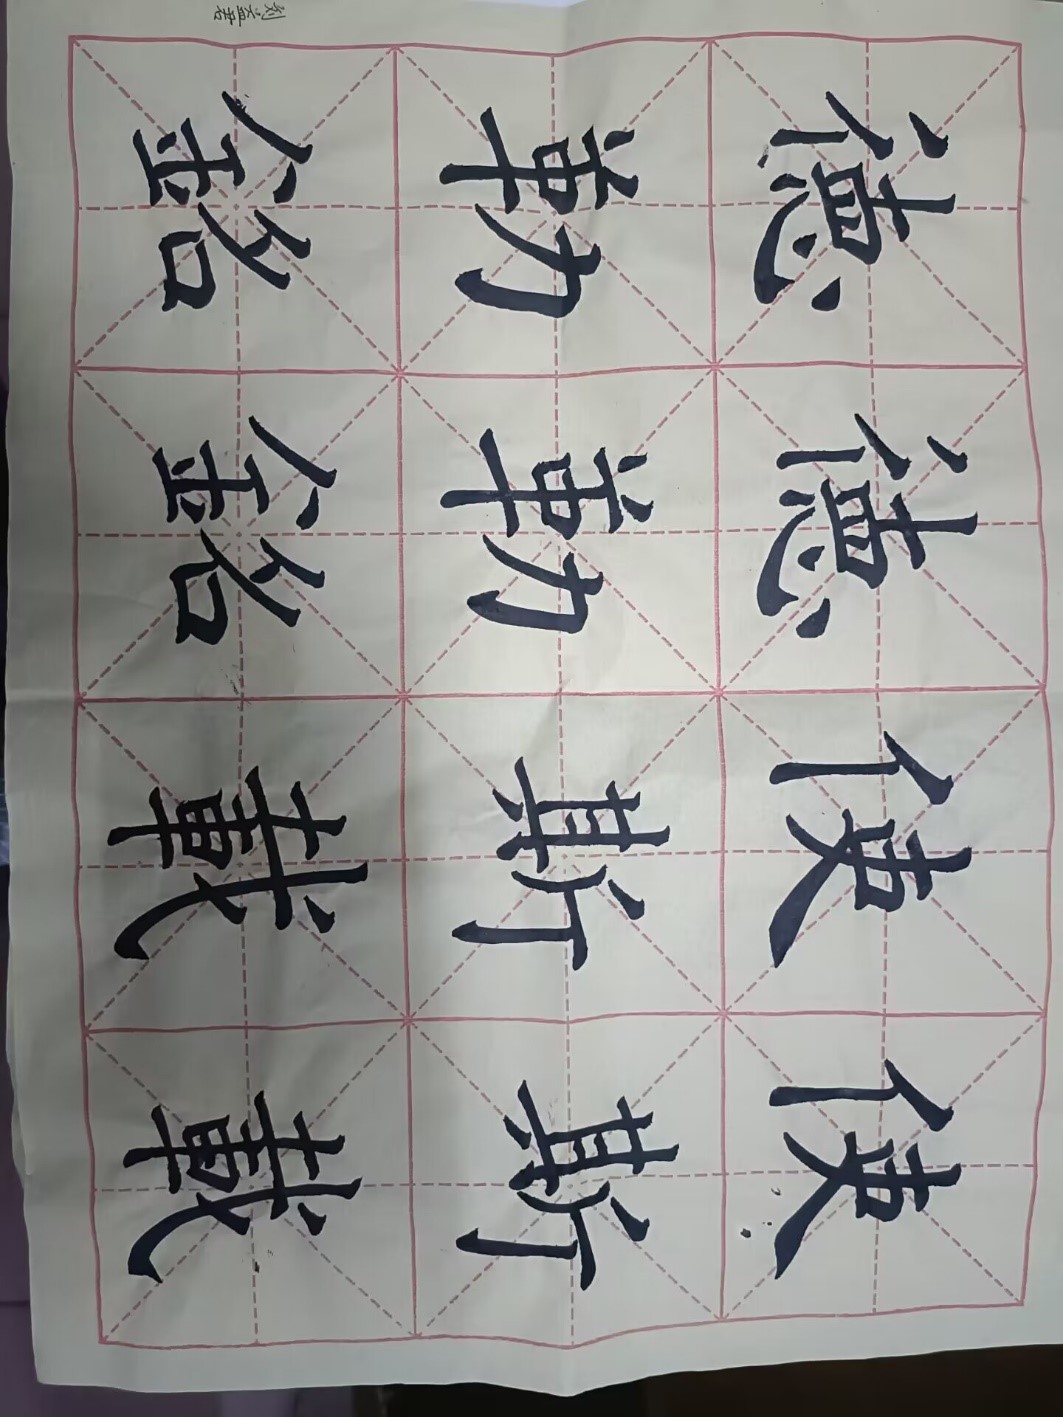 使斯載
使斯載
德勒銘
德勒銘